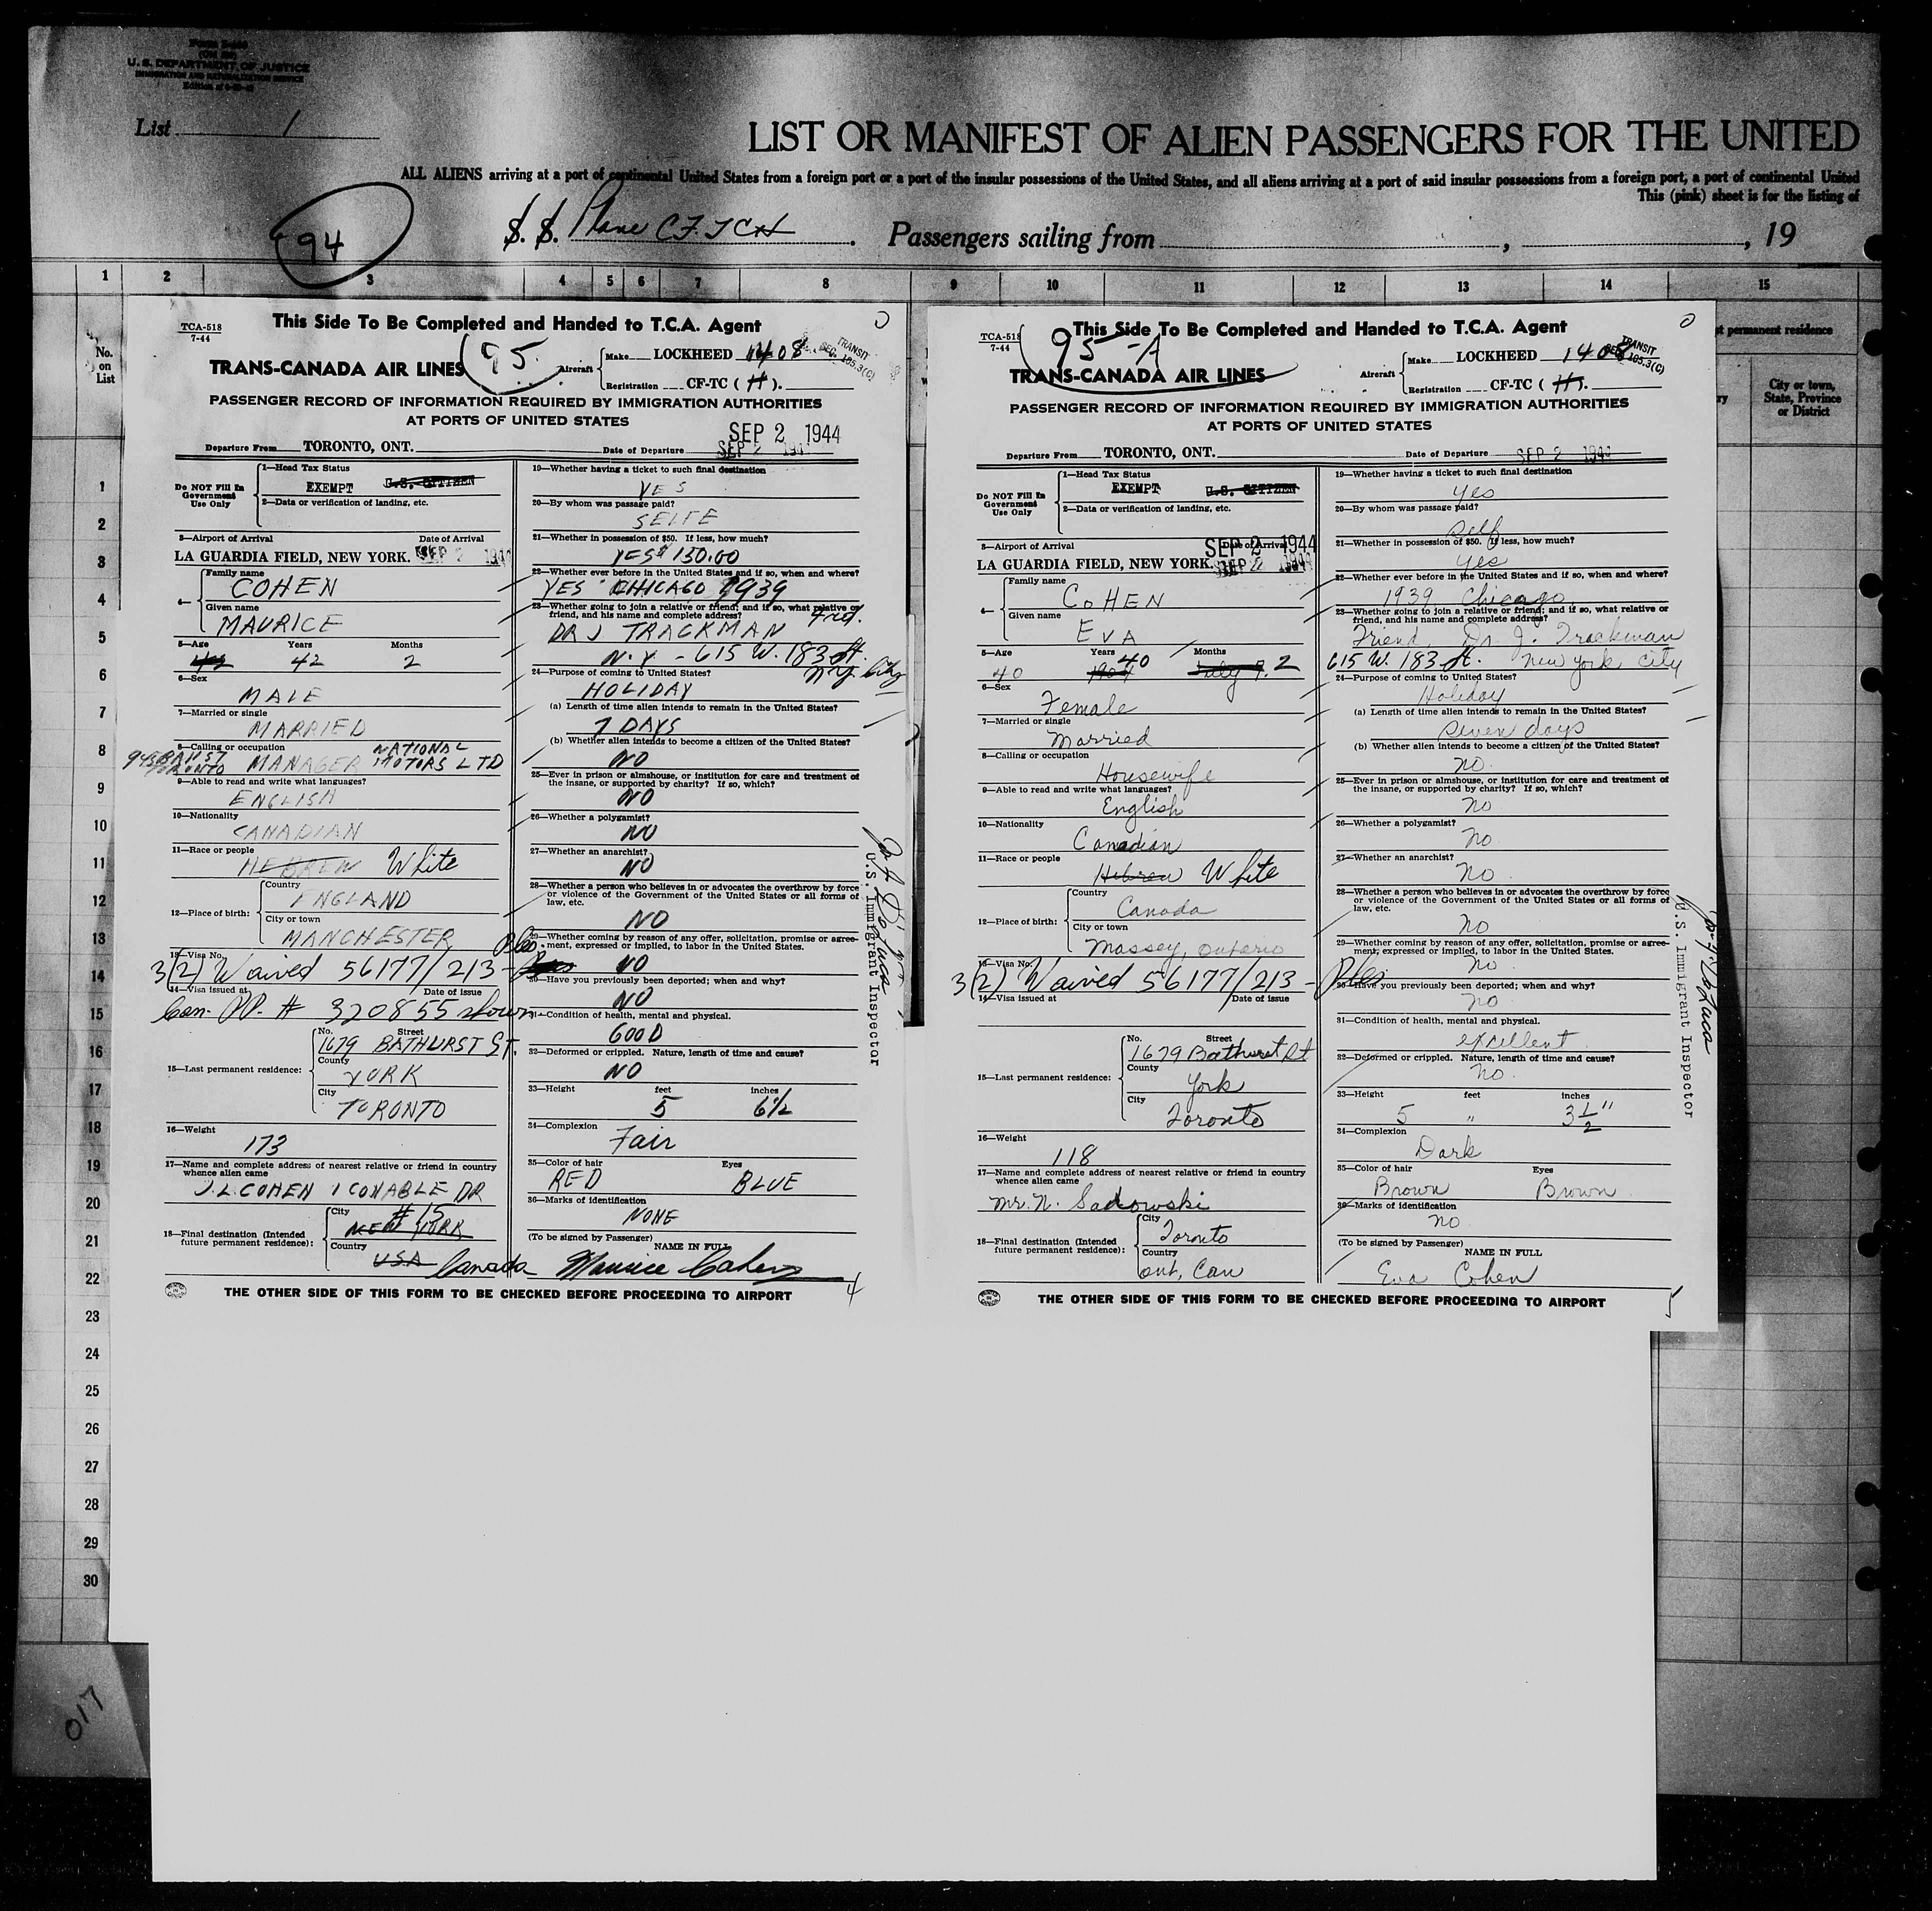 U. S. DEPARTMENT OF JUSTICE
IMMIGRATION AND NATURALIZATION SERVICE
List 1
LIST OR MANIFEST OF ALIEN PASSENGERS FOR THE UNITED
ALL ALIENS arriving at a port of continental United States from a foreign port or a port of the insular possessions of the United States, and all aliens arriving at a port of said insular possessions from a foreign port, a port of continental United
This (pink) sheet is for the listing of
94
S. S. Plane CF. TCH. Passengers sailing from , , 19
1 2 3 4 5 6 7 8 9 10 11 12 13 14 15
No. on List
st permanent residence
City or town, State, Province or District
1
2
3
4
5
6
7
8
9
10
11
12
13
14
15
16
17
18
19
20
21
22
23
24
25
26
27
28
29
30
017
TCA-518
7-44
This Side To Be Completed and Handed to T.C.A. Agent
95
TRANSIT
SEC. 165.3(C)
TRANS-CANADA AIR LINES
Aircraft
Make LOCKHEED 1408
Registration CF-TC ( H ).
PASSENGER RECORD OF INFORMATION REQUIRED BY IMMIGRATION AUTHORITIES
AT PORTS OF UNITED STATES
SEP 2 1944
Departure From TORONTO, ONT. Date of Departure SEP 2 194
Do NOT Fill In Government Use Only
1—Head Tax Status
EXEMPT U.S. CITIZEN
2—Data or verification of landing, etc.
3—Airport of Arrival Date of Arrival
LA GUARDIA FIELD, NEW YORK. SEP 2 1944
4—
Family name
COHEN
Given name
MAURICE
5—Age Years Months
42 2
6—Sex
MALE
7—Married or single
MARRIED
8—Calling or occupation
MANAGER NATIONAL MOTORS LTD
TORONTO
9—Able to read and write what languages?
ENGLISH
10—Nationality
CANADIAN
11—Race or people
HEBREW White
12—Place of birth:
Country
ENGLAND
City or town
MANCHESTER
13—Visa No.
3(2) Waived 56177/213 -
14—Visa issued at Date of issue
Can. PP. # 320855 shown
15—Last permanent residence:
No. Street
1679 BATHURST ST.
County
YORK
City
TORONTO
16—Weight
173
17—Name and complete address of nearest relative or friend in country
whence alien came
J. L. COHEN 1 CONABLE DR
# 15
18—Final destination (Intended
future permanent residence):
City
NEW YORK
Country
USA Canada
19—Whether having a ticket to such final destination
YES
20—By whom was passage paid?
SELFE
21—Whether in possession of $50. If less, how much?
YES $ 150.00
22—Whether ever before in the United States and if so, when and where?
YES CHICAGO 1939
23—Whether going to join a relative or friend; and if so, what relative or
friend, and his name and complete address?
DR J TRACKMAN
N. Y - 615 W. 183 St. N.Y. City
24—Purpose of coming to United States?
HOLIDAY
(a) Length of time alien intends to remain in the United States?
7 DAYS
(b) Whether alien intends to become a citizen of the United States?
NO
25—Ever in prison or almshouse, or institution for care and treatment of
the insane, or supported by charity? If so, which?
NO
26—Whether a polygamist?
NO
27—Whether an anarchist?
NO
28—Whether a person who believes in or advocates the overthrow by force
or violence of the Government of the United States or all forms of
law, etc.
NO
29—Whether coming by reason of any offer, solicitation, promise or agree-
ment, expressed or implied, to labor in the United States.
NO
30—Have you previously been deported; when and why?
NO
31—Condition of health, mental and physical.
GOOD
32—Deformed or crippled. Nature, length of time and cause?
NO
33—Height feet inches
5 6½
34—Complexion
Fair
35—Color of hair Eyes
RED BLUE
36—Marks of identification
NONE
(To be signed by Passenger) NAME IN FULL
Maurice Cohen
4
THE OTHER SIDE OF THIS FORM TO BE CHECKED BEFORE PROCEEDING TO AIRPORT
U.S. Immigrant Inspector
TCA-518
7-44
This Side To Be Completed and Handed to T.C.A. Agent
95-A
TRANSIT
SEC. 165.3(C)
TRANS-CANADA AIR LINES
Aircraft
Make LOCKHEED 1408
Registration CF-TC ( H ).
PASSENGER RECORD OF INFORMATION REQUIRED BY IMMIGRATION AUTHORITIES
AT PORTS OF UNITED STATES
Departure From TORONTO, ONT. Date of Departure SEP 2 1944
Do NOT Fill In Government Use Only
1—Head Tax Status
EXEMPT U.S. CITIZEN
2—Data or verification of landing, etc.
3—Airport of Arrival Date of Arrival
SEP 2 1944
LA GUARDIA FIELD, NEW YORK. SEP 2 1944
4—
Family name
COHEN
Given name
EVA
5—Age Years Months
40 1904 40 July 9. 2
6—Sex
Female
7—Married or single
Married
8—Calling or occupation
Housewife
9—Able to read and write what languages?
English
10—Nationality
Canadian
11—Race or people
Hebrew White
12—Place of birth:
Country
Canada
City or town
Massey, Ontario
13—Visa No.
3(2) Waived 56177/213 -
14—Visa issued at Date of issue
15—Last permanent residence:
No. Street
1679 Bathurst St
County
York
City
Toronto
16—Weight
118
17—Name and complete address of nearest relative or friend in country
whence alien came
Mr. N. Sadowski
18—Final destination (Intended
future permanent residence):
City
Toronto
Country
Ont, Can
19—Whether having a ticket to such final destination
yes
20—By whom was passage paid?
self
21—Whether in possession of $50. If less, how much?
yes
22—Whether ever before in the United States and if so, when and where?
1939 Chicago
23—Whether going to join a relative or friend; and if so, what relative or
friend, and his name and complete address?
Friend Dr. J. Trackman
615 W. 183 St. New York City
24—Purpose of coming to United States?
Holiday
(a) Length of time alien intends to remain in the United States?
seven days
(b) Whether alien intends to become a citizen of the United States?
no
25—Ever in prison or almshouse, or institution for care and treatment of
the insane, or supported by charity? If so, which?
no
26—Whether a polygamist?
no
27—Whether an anarchist?
no
28—Whether a person who believes in or advocates the overthrow by force
or violence of the Government of the United States or all forms of
law, etc.
no
29—Whether coming by reason of any offer, solicitation, promise or agree-
ment, expressed or implied, to labor in the United States.
no
30—Have you previously been deported; when and why?
no
31—Condition of health, mental and physical.
excellent
32—Deformed or crippled. Nature, length of time and cause?
no
33—Height feet inches
5 " 3½"
34—Complexion
Dark
35—Color of hair Eyes
Brown Brown
36—Marks of identification
no
(To be signed by Passenger) NAME IN FULL
Eva Cohen
5
THE OTHER SIDE OF THIS FORM TO BE CHECKED BEFORE PROCEEDING TO AIRPORT
U.S. Immigrant Inspector